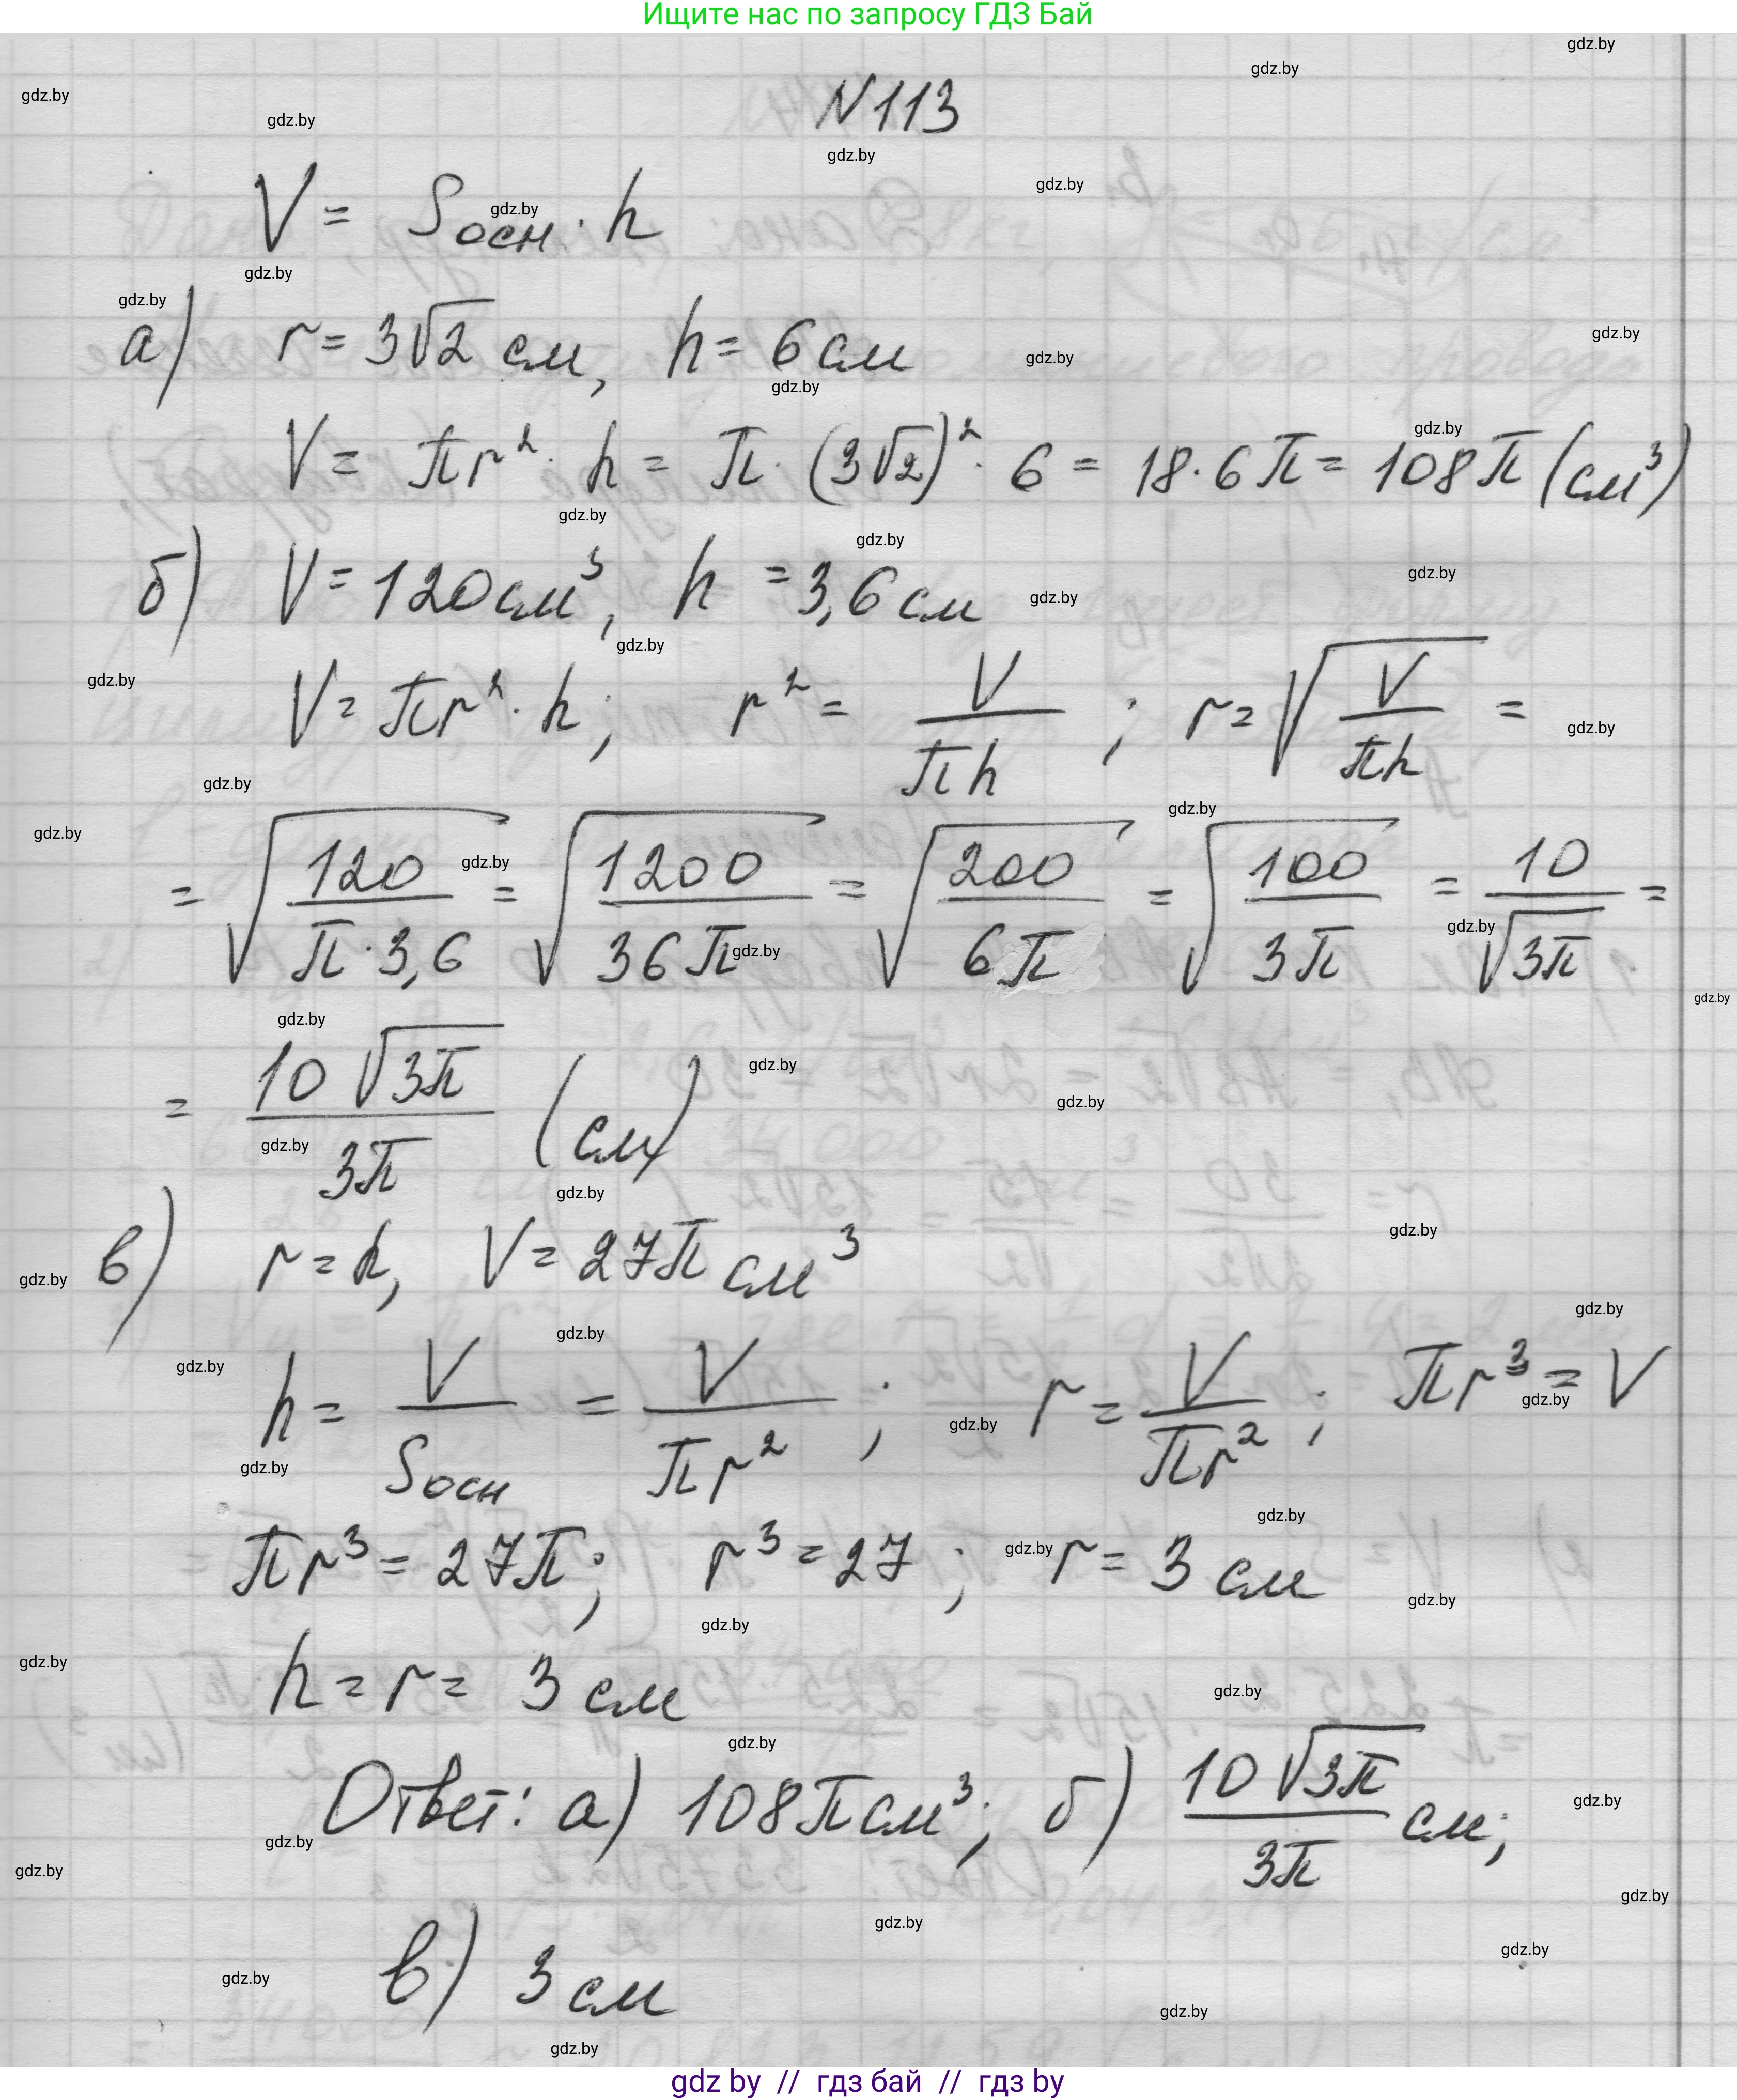 Ищите нас по запросу ГДЗ Бай
N 113
V = Sосн · h
а) r = 3√2 см, h = 6 см
V = πr² · h = π · (3√2)² · 6 = 18 · 6π = 108π (см³)
б) V = 120 см³, h = 3,6 см
V = πr² · h; r² = V/(πh); r = √(V/(πh)) =
= √(120/(π · 3,6)) = √(1200/(36π)) = √(200/(6π)) = √(100/(3π)) = 10/√(3π) =
= 10√(3π)/(3π) (см)
в) r = h, V = 27π см³
h = V/Sосн = V/(πr²); r = V/(πr²); πr³ = V
πr³ = 27π; r³ = 27; r = 3 см
h = r = 3 см
Ответ: а) 108π см³; б) 10√(3π)/(3π) см;
в) 3 см
gdz by // гдз бай // гдз by